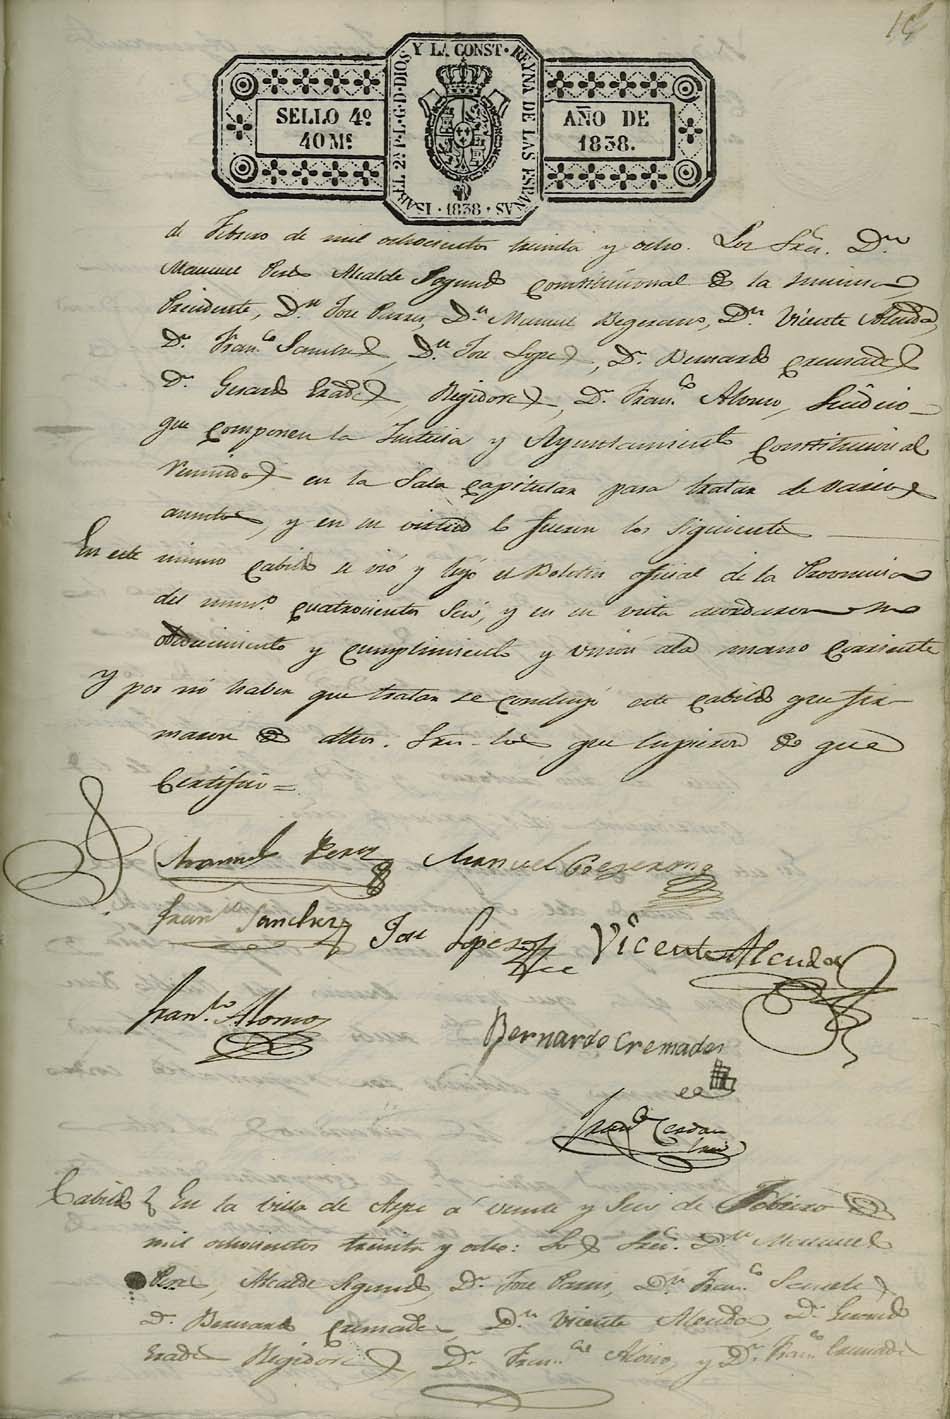 15
SELLO 4º
40 Ms.
ISABEL 2ª P. L. G. D. DIOS Y LA CONST. REYNA DE LAS ESPAÑAS
1838
AÑO DE
1838.
de Febrero de mil ochocientos treinta y ocho. Los Sres. Dn.
Manuel Peres Alcalde Segundo constitucional de la misma
Presidente, Dn. Jose Parres, Dn. Manuel Begerano, Dn. Vicente Alcudas,
Dn. Franco. Sanches, Dn. Jose Lopes, Dn. Bernardo Cremades
Dn. Gerardo Erades, Regidores, Dn. Franco. Alonso, Sindico
que componen la Justicia y Ayuntamiento Constitucional
reunidos en la Sala capitular para tratar de varios
asuntos, y en su virtud lo fueron los siguientes
En este mismo cabildo se vió y leyó el Boletin oficial de la Provincia
del numo. cuatrocientos seis, y en su vista acordaron su
obedecimiento y cumplimiento y union a la mano corriente
Y por no haber que tratar se concluyó este cabildo que fir-
maron de dhos. Sres. los que supieron de que
Certifico =
Manuel Perez Manuel Begerano
Franco. Sanchez Jose Lopez Vicente Alcudas
Franco. Alonso
Bernardo Cremades
Franco. Cerdan
Srio
Cabildo En la villa de Aspe á veinte y seis de Febrero de
mil ochocientos treinta y ocho: Los Sres. Dn. Manuel
Peres, Alcalde Segundo, Dn. Jose Parres, Dn. Franco. Sanches,
Dn. Bernardo Cremades, Dn. Vicente Alcudas, Dn. Gerardo
Erades Regidores, Dn. Franco. Alonso, y Dn. Franco. Cremades